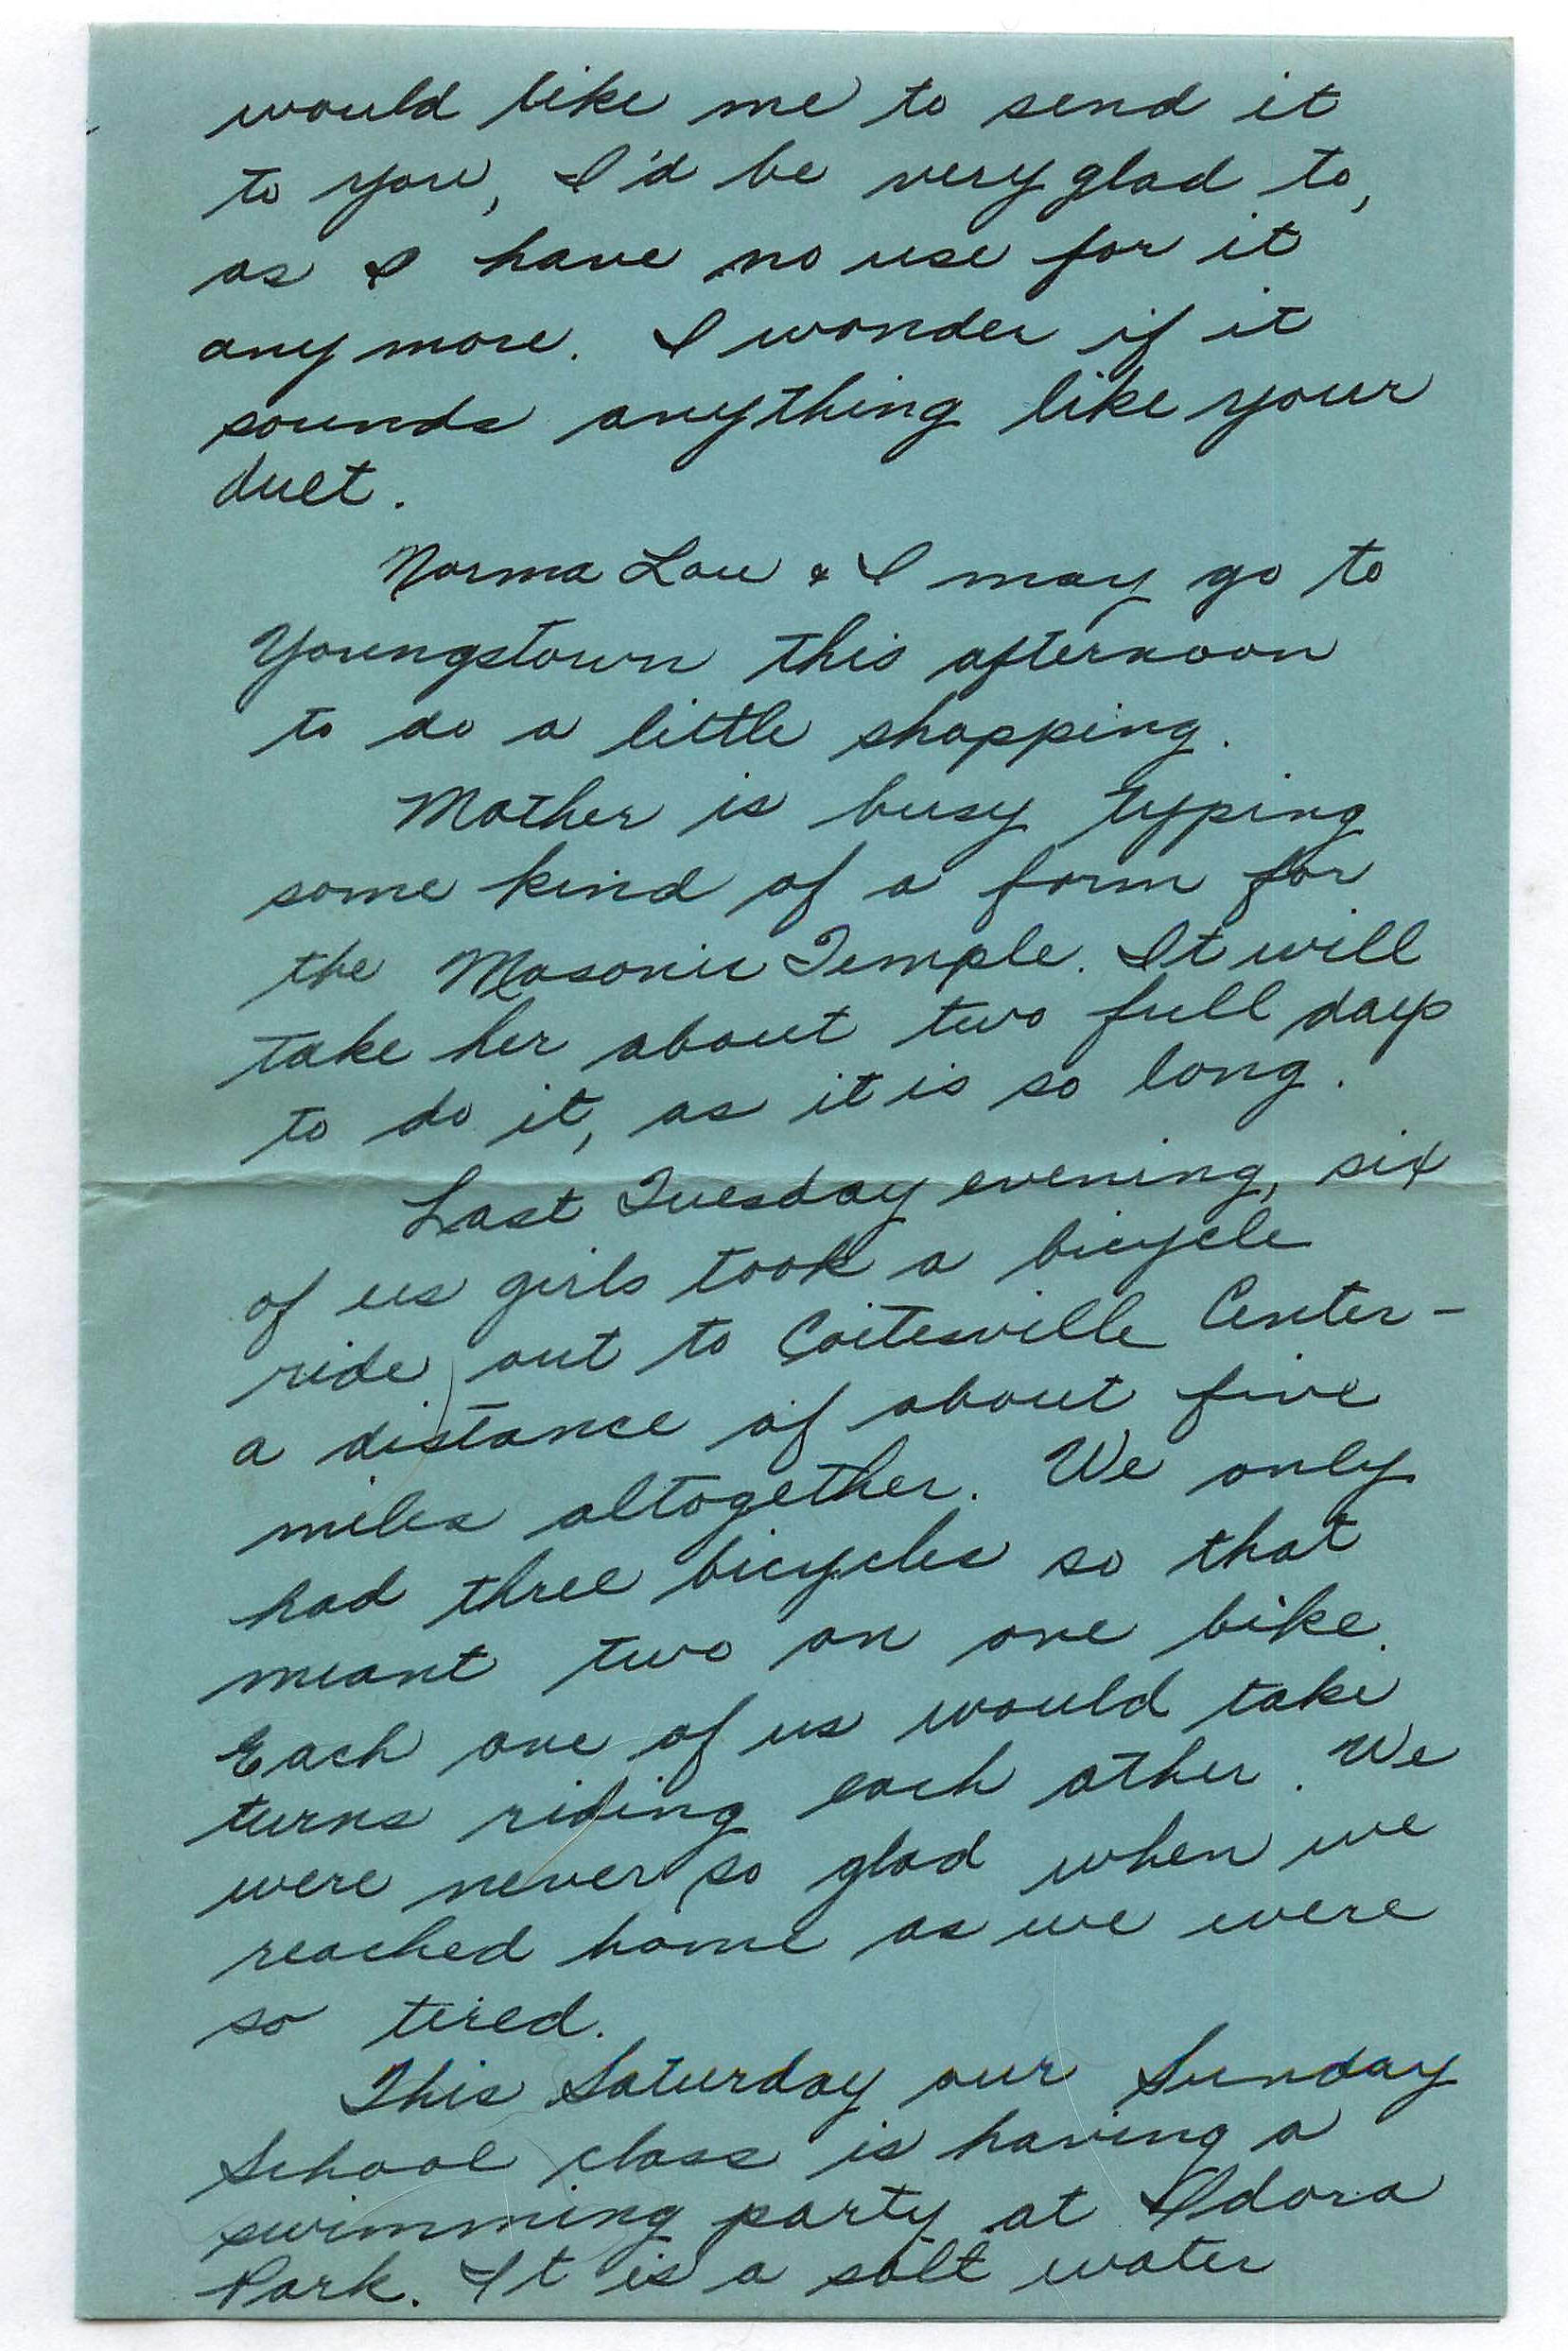 would like me to send it
to you, I'd be very glad to,
as I have no use for it
any more. I wonder if it
sounds anything like your
duet.
Norma Lou & I may go to
Youngstown this afternoon
to do a little shopping.
Mother is busy typing
some kind of a form for
the Masonic Temple. It will
take her about two full days
to do it, as it is so long.
Last Tuesday evening, six
of us girls took a bicycle
ride out to Coitesville Center -
a distance of about five
miles altogether. We only
had three bicycles so that
meant two on one bike.
Each one of us would take
turns riding each other. We
were never so glad when we
reached home as we were
so tired.
This Saturday our Sunday
School class is having a
swimming party at Idora
Park. It is a salt water